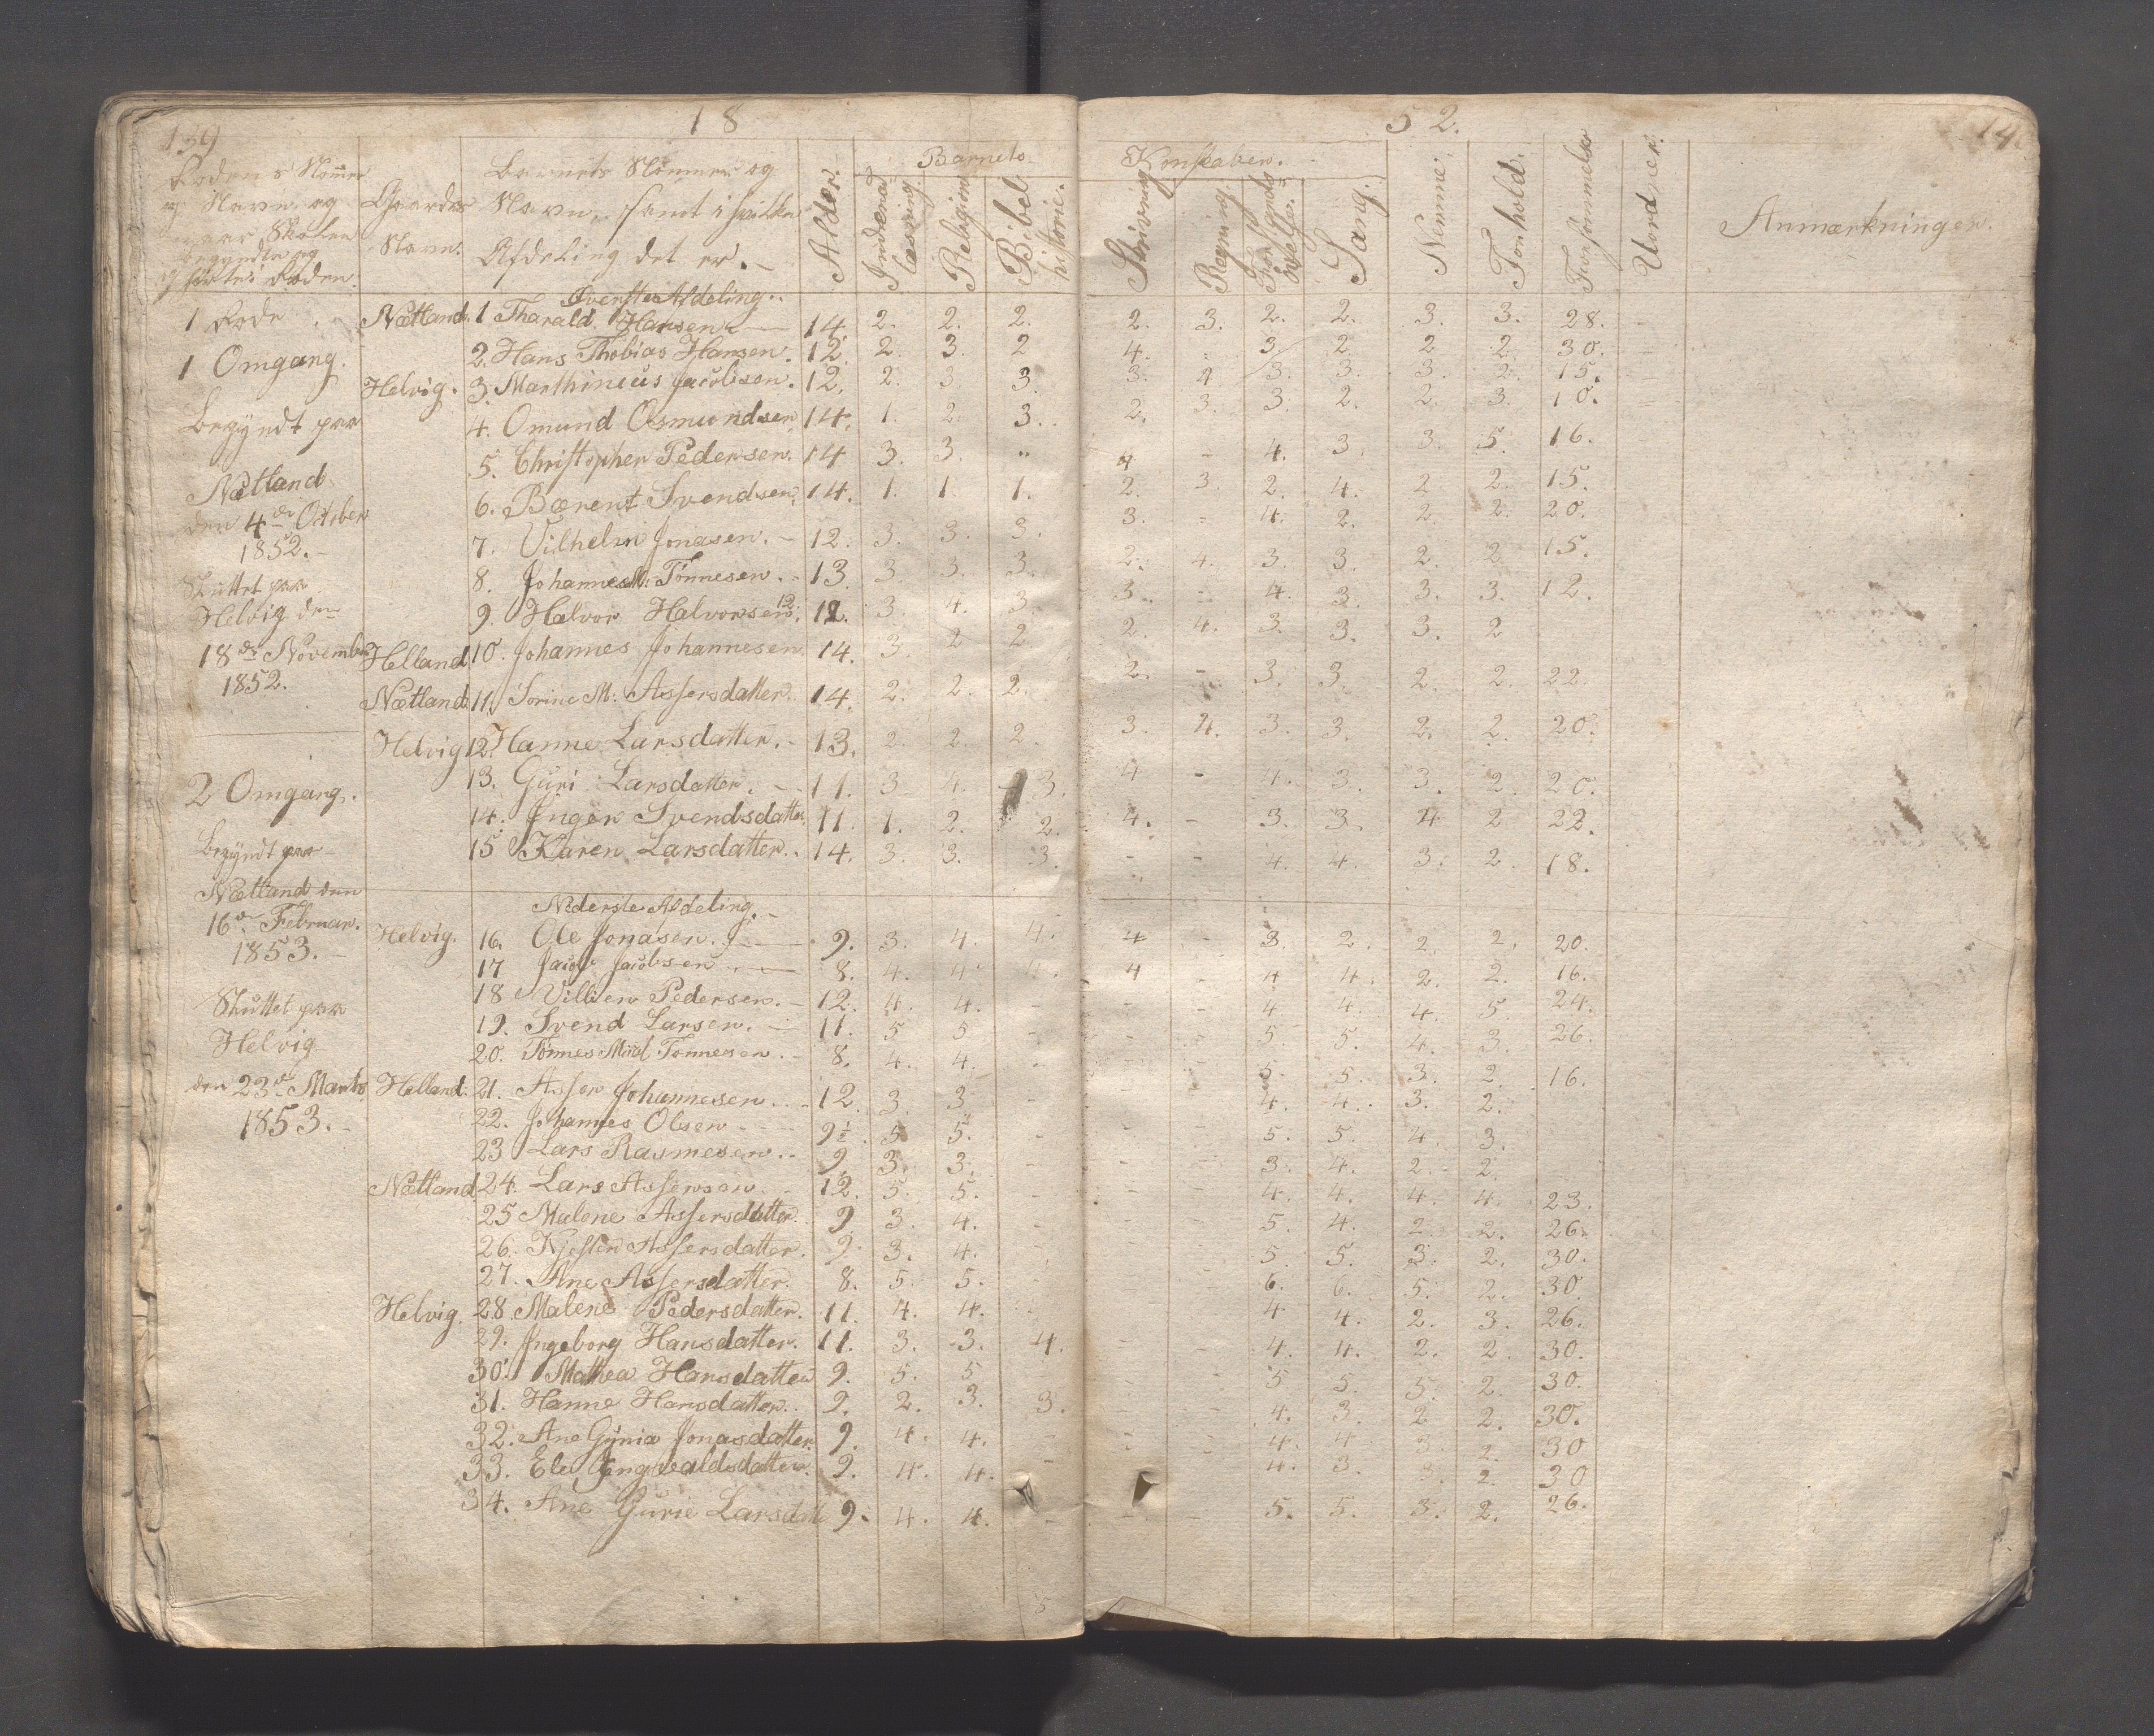 139
18
52.
14
Rodens Nommer og Navn og naar Skolen begyndte og sluttede i Roden.
Gaardes Navn.
Barnets Nommer og Navn, samt i hvilken Afdeling det er.
Alder.
Barnets Kunskaber.
Indenad læsning.
Religion
Bibel historie.
Skrivning
Regning.
Sang.
Nemme.
Forhold.
Forsømmelse
Uord ner.
Anmærkninger.
1 Rode
1 Omgang.
Begyndt paa
Nætland
den 4de October
1852.
Sluttet paa
Helvig den
18de November
1852.
2 Omgang.
Begyndt paa
Nætland den
16de Februar.
1853.
Sluttet paa
Helvig
den 23de Marts
1853.
Øverste Afdeling.
Nætland. 1 Tharald Hansen 14. 2. 2. 2. 2. 3. 2. 2. 3. 3. 28.
2. Hans Thobias Hansen. 12. 2. 3. 2 4. " 3. 2 2 2. 30.
Helvig. 3. Marthinius Jacobsen. 12. 2. 3. 3. 3. 4 3. 3. 3. 2. 15.
4. Omund Osmundsen 14. 1. 2. 3. 2. 3. 3. 2. 2. 3. 10.
5. Christopher Pedersen. 14 3. 3. " 4 - 4. 3. 3. 5. 16.
6. Bærent Svendsen. 14. 1. 1. 1. 2. 3. 2. 4. 2 2. 15.
7. Vilhelm Jonasen. 12. 3. 3. 3. 3. " 4. 2. 2. 2. 20.
8. Johannes M. Tønnesen. 13 3. 3. 3. 2. 4. 3. 3. 2. 2 15.
9. Halvor Halvorsen. 12. 3. 4. 3. 3. - 4. 3. 3. 3. 12.
Helland 10. Johannes Johannesen 14. 3. 2 2 2. 4. 3. 3. 3. 2
Nætland. 11. Sorine M. Assersdatter. 14. 2. 2. 2. 2. - 3. 3. 2. 2. 22.
Helvig 12. Hanne Larsdatter. 13. 2. 2. 2. 3. 4. 3. 3. 2. 2. 20.
13. Guri Larsdatter. 11. 3. 4. 3. 4 - 4. 3. 3. 2. 20.
14. Inger Svendsdatter. 11. 1. 2. 2. 4. - 3. 3. 4 2 22.
15 Karen Larsdatter. 14. 3. 3. 3. - - 4. 4. 3. 2. 18.
Nederste Afdeling.
Helvig. 16. Ole Jonasen. 9. 3. 4. 4. 4 - 3. 2. 2. 2. 20.
17 Jacob Jacobsen 8. 4. 4. 4. 4 - 4 4. 2. 2. 16.
18 Villien Pedersen. 12. 4. 4. - - - 4 4. 4. 5. 24.
19. Svend Larsen. 11. 5 5 - - - 5. 5. 4. 3. 26.
20. Tønnes Mial Tønnesen. 8. 4. 4. - - - 5. 5. 3. 2. 16.
Helland. 21. Asser Johannesen. 12. 3. 3 - - - 4. 4. 3. 2.
22. Johannes Olsen 9½. 5 5. - - - 5. 5. 4. 3.
23 Lars Rasmesen. 9 3. 3. - - - 3. 4. 2. 2.
Nætland. 24. Lars Assersen 12. 5. 5. - - - 4. 4. 4. 4. 23.
25 Malene Assersdatter. 9 3. 4. - - - 5. 4. 2. 2. 26.
26. Kjesten Assersdatter. 9. 3. 4. - - - 5 5. 3. 2. 30.
27. Ane Assersdatter. 8. 5. 5. - - - 6. 6. 5. 2. 30.
Helvig. 28. Malene Pedersdatter. 11. 4. 4. - - - 4 4. 2. 3. 26.
29. Ingeborg Hansdatter. 11. 3. 3. 4. - - 4. 4. 2. 2. 30.
30. Mathea Hansdatter 9. 5. 5 - - - 5 5. 5. 2. 30.
31. Hanne Hansdatter. 9. 2. 3. 3. - - 4. 3. 2 2. 30.
32. Ane Gunia Jonasdatter. 9. 4. 4. - - - 4. 4 3. 2. 30
33. Ele Ingwaldsdatter. 9. 4. 4. - - - 4. 3. 3. 2. 30
34. Ane Gurie Larsdatt 9. 4. 4. - - - 5. 5. 3. 2. 26.
5